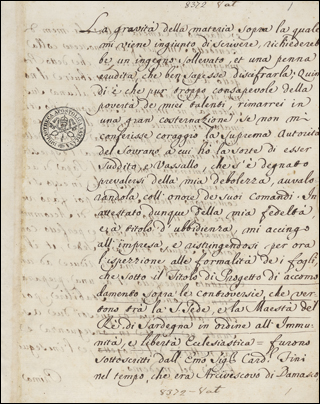 8372 Vat
La gravità della materia sopra la quale
mi viene ingiunto di scrivere, richiedereb
be un ingegno sollevato, et una penna
erudita, che ben sapesse diciferarla; Quin
di è che pur troppo consapevole della
povertà de' miei talenti, rimarrei in
una gran costernazione se non mi
conferisse coraggio la Suprema Autorità
del Sovrano, a cui hò la sorte di esser
Suddito, e Vassallo, che s'è degnato
prevalersi della mia debolezza, avvalo
randola coll'onore de suoi Comandi. In
attestato dunque della mia fedeltà
e à titolo d'ubbidienza, mi accingo
all'impresa, e ristringendosi per ora
l'ispezzione alle formalità de i fogli,
che sotto il Titolo di Progetto di accom
damento sopra le controversie, che ver
dono trà la S. Sede, e la Maestà del
Rè di Sardegna in ordine all'Immu
nità, e libertà Ecclesiastica = furono
sottoscritti dall'Emo Sig. Card. Fini
nel tempo, che era Arcivescovo di Damasco
8372 - Vat